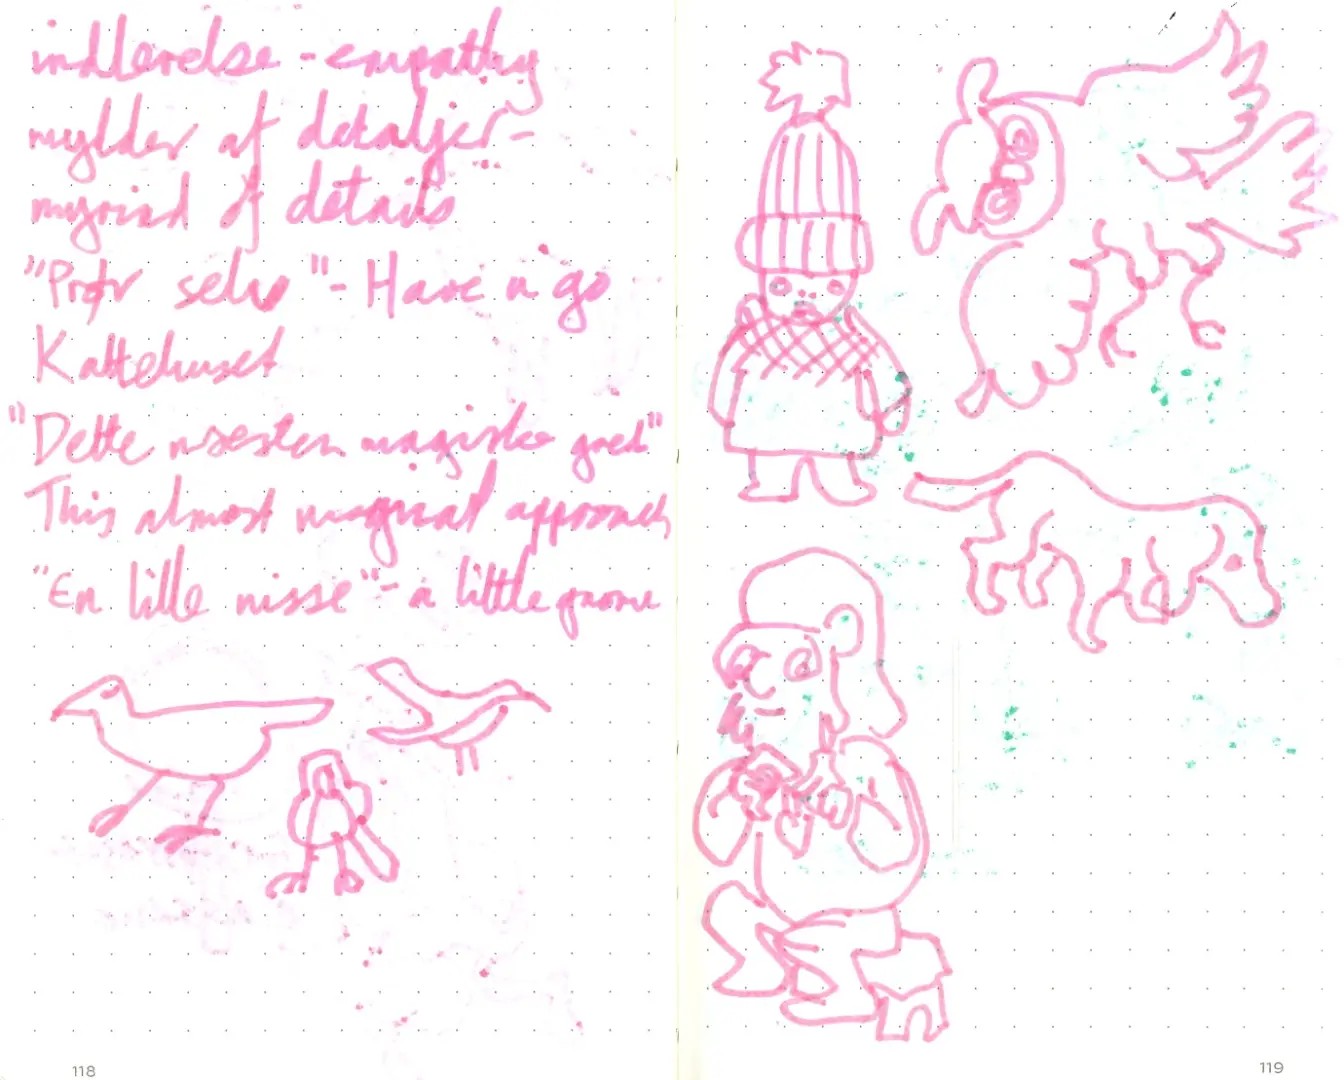 indlevelse - empathy
mylder af detaljer -
myriad of details
"Prøv selv" - Have a go
Kattehuset
"Dette næsten magiske greb"
This almost magical approach
"En lille nisse" - a little gnome
118
119